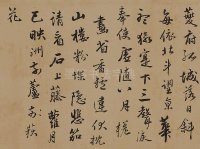 夔府孤城落日斜
每依北斗望京華
聽猿實下三聲淚
奉使虛隨八月槎
畫省香爐違伏枕
山樓粉堞隱悲笳
請看石上藤蘿月
已映洲前蘆荻
花